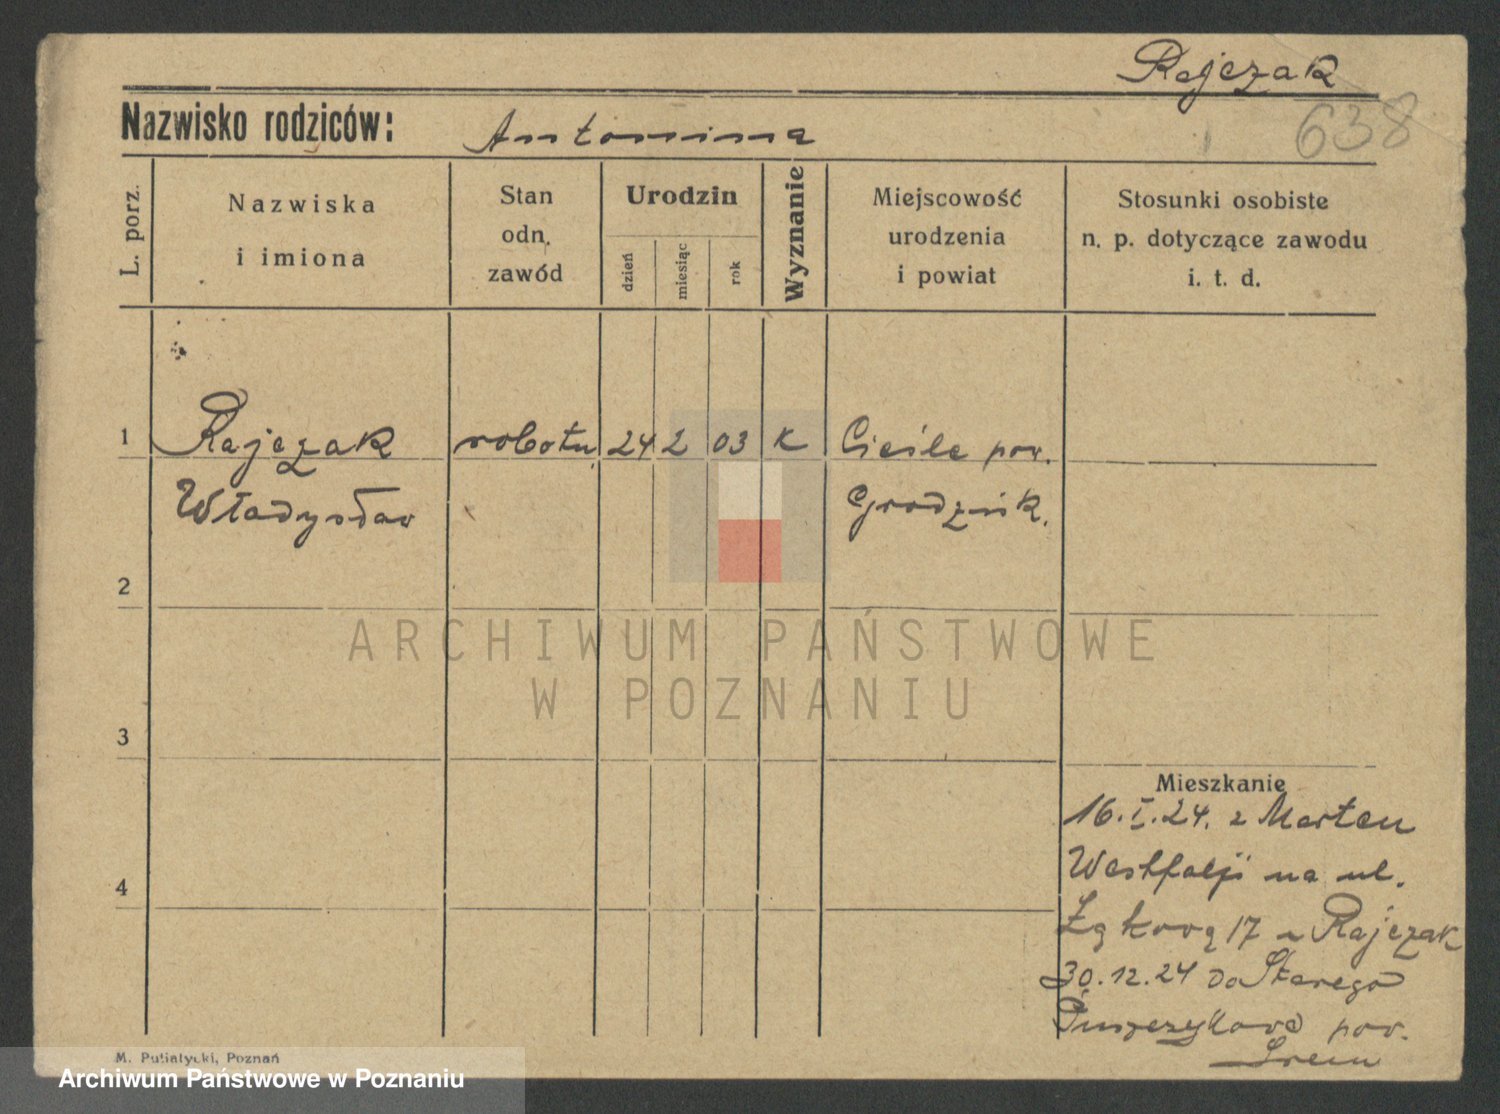 Rajczak
638
Nazwisko rodziców: Antonina
L. porz.
Nazwiska
i imiona
Stan
odn.
zawód
Urodzin
dzień
miesiąc
rok
Wyznanie
Miejscowość
urodzenia
i powiat
Stosunki osobiste
n. p. dotyczące zawodu
i. t. d.
1 Rajczak robotn 24 2 03 K Cieśle pow.
Władysław Grodzisk.
2
ARCHIWUM PAŃSTWOWE
W POZNANIU
3
Mieszkanie
16.I.24. z Marten
Westfalji na ul.
4
Łąkową 17 u Rajczak
30.12.24 do Starego
pow.
Śrem
M. Putiatycki, Poznań
Archiwum Państwowe w Poznaniu